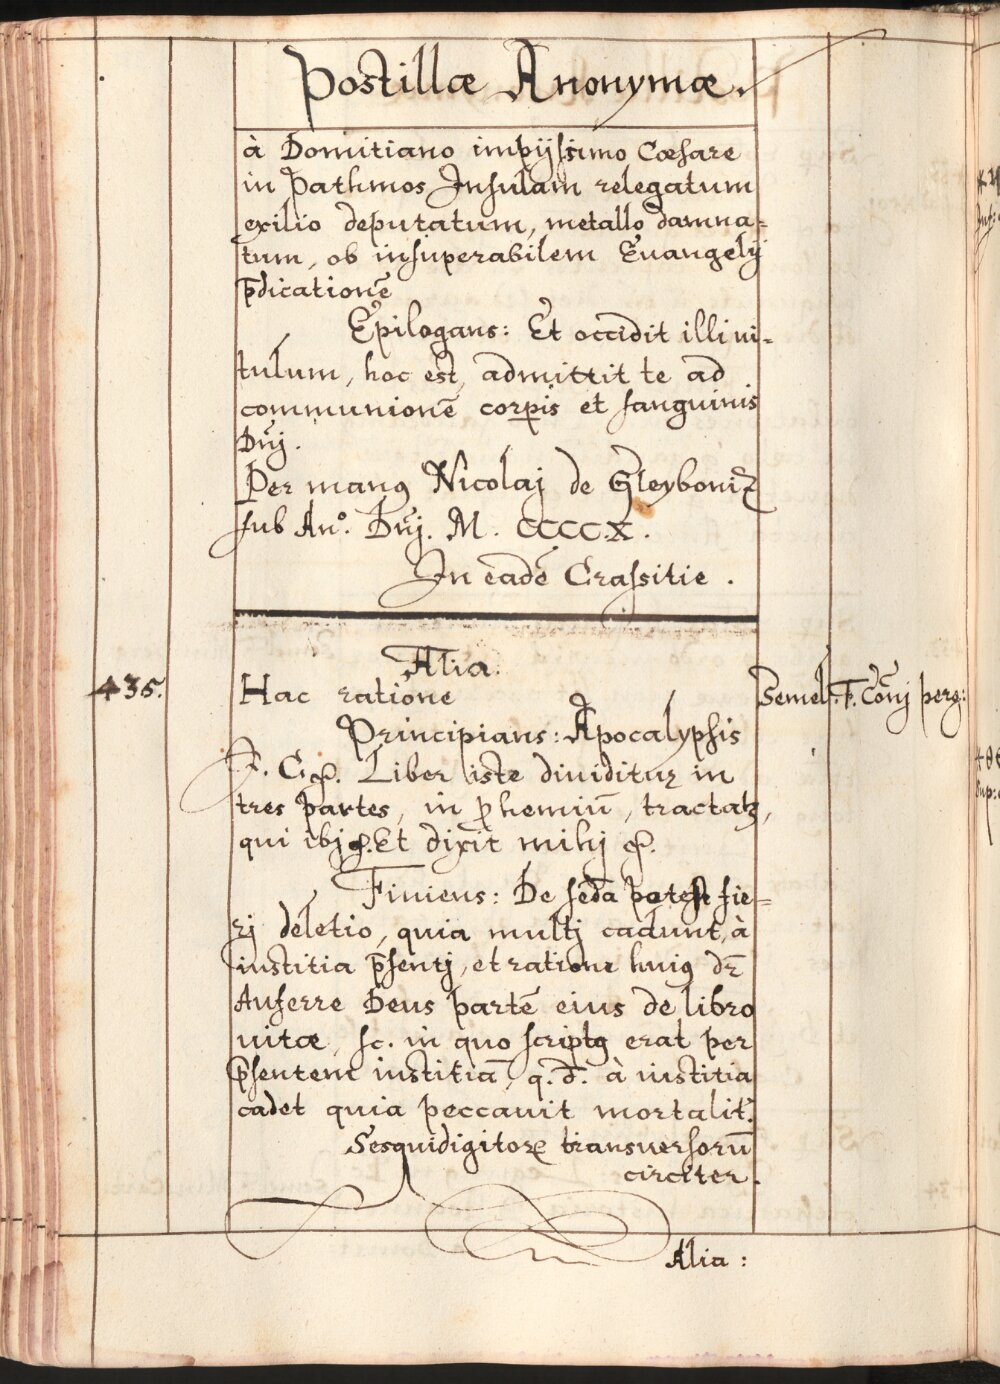 Postillæ Anonymæ.
à Domitiano impijssimo Cæsare
in Pathmos Insulam relegatum
exilio deputatum, metallo damna=
tum, ob insuperabilem Euangelij
p̄dicationē
Epilogans: Et occidit illi ui=
tulum, hoc est, admittit te ad
communionē corpis et sanguinis
Dn̄j.
Per manꝰ Nicolaj de Gleyboniz
sub An°. Dn̄j. M. CCCC.X.
In eādē Crassitie.
Alia.
435.
Hac ratione
Semel. F. Co͞nj perg:
Principians: Apocalypsis
J. C. &. Liber iste diuiditur in
tres partes, in p̄hemiū, tractatꝫ,
qui ibj &. Et dixit mihj &.
Finiens: De sēda potest fie=
rj deletio, quia multj cadunt, à
iustitia p̄sentj, et ratione huiꝰ dr̄
Auferre Deus partē eius de libro
uitæ, sc. in quo scriptꝰ erat per
p̄sentem iustitiā, q. d. à iustitia
cadet quia peccauit mortalit.
Sesquidigitorꝝ transuersorū
circiter.
Alia: